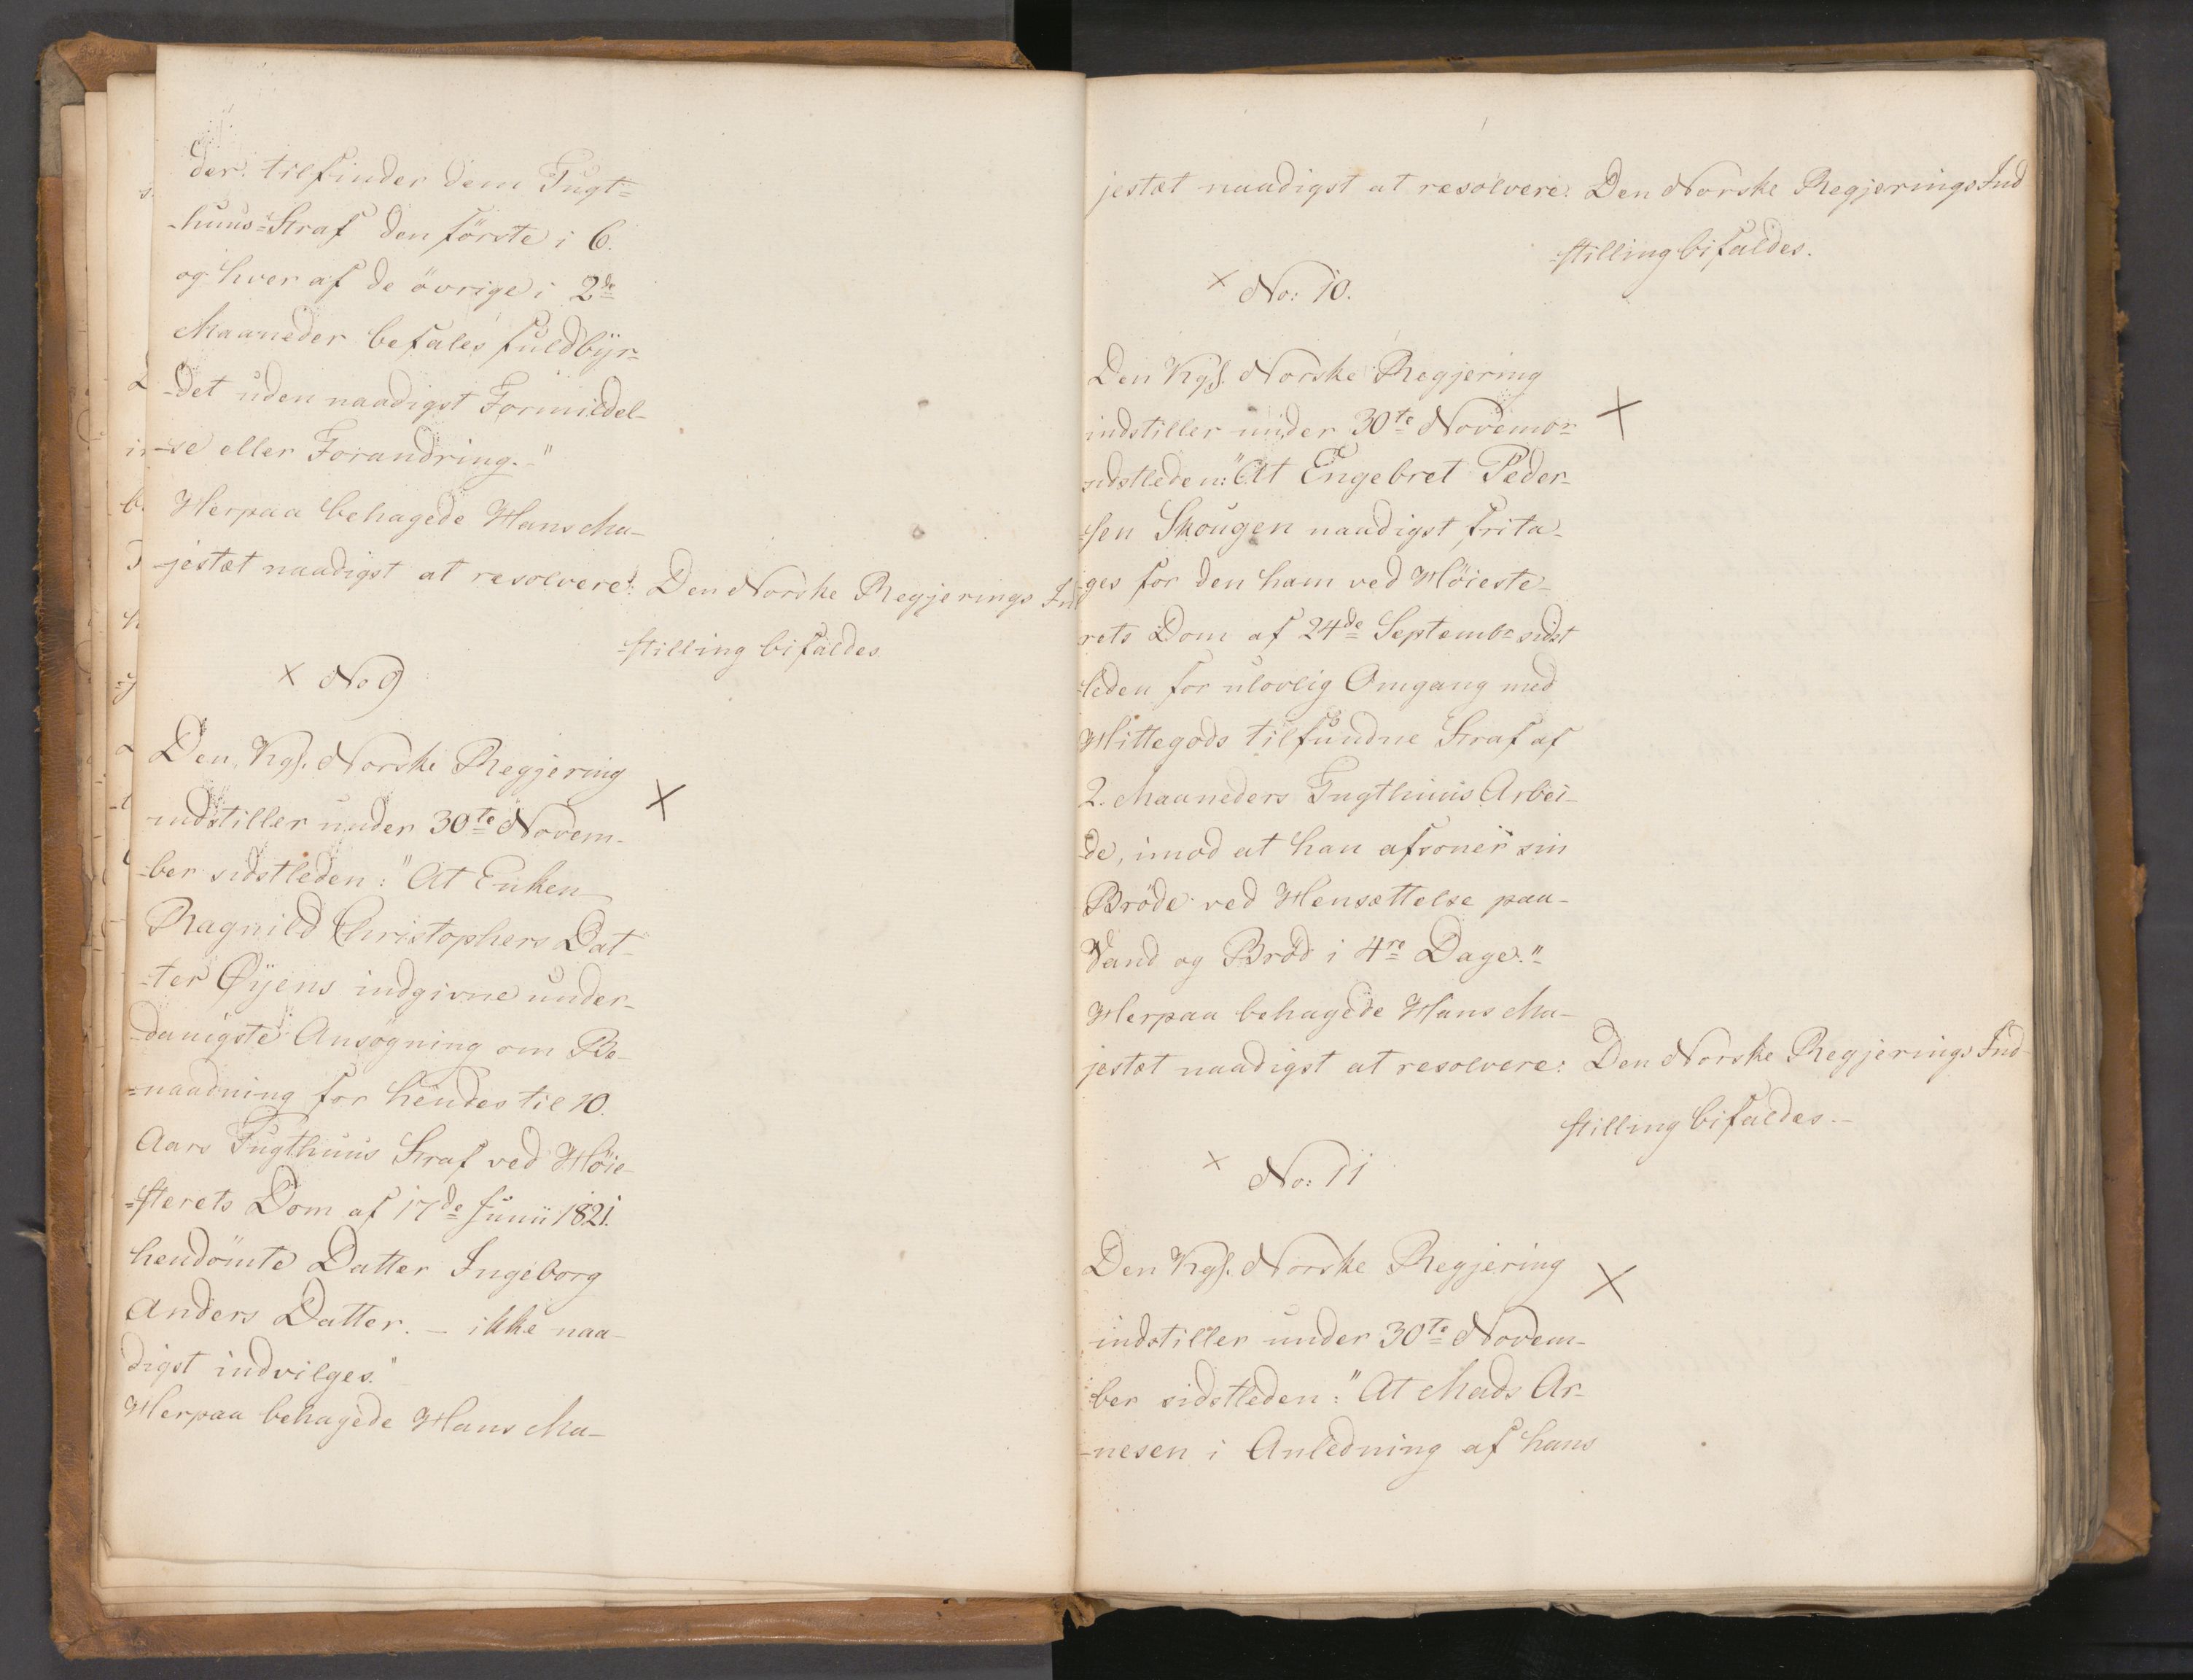 der tilfinder dem Tugt-
-huus-Straf den förste i 6.
og hver af de övrige i 2de
Maaneder befales fuldbÿr-
-det uden naadigst Formildel-
-se eller Forandring.-"
Herpaa behagede Hans Ma-
-jestæt naadigst at resolvere: Den Norske Regjerings Ind
-stilling bifaldes
× No 9
Den Kgl. Norske Regjering
×
indstiller under 30te Novem-
-ber sidstleden: "At Enken
Ragnild Christophers Dat-
-ter Øÿens indgivne under-
-danigste Ansögning om Be-
-naadning for hendes til 10.
Aars Tugthuus Straf ved Höie-
-sterets Dom af 17de Junii 1821.
hendömte Datter Ingeborg
Anders Datter. - ikke naa-
digst indvilges."
Herpaa behagede Hans Ma-
jestæt naadigst at resolvere: Den Norske Regjerings Ind
-stilling bifaldes.
× No: 10.
Den Kgl. Norske Regjering
×
indstiller under 30te Novembr
sidstleden: "At Engebret Peder-
-sen Skougen naadigst frita-
ges for den ham ved Höieste-
rets Dom af 24de Septembr sidst
-leden for ulovlig Omgang med
Hittegods tilfundne Straf af
2. Maaneders Tugthuus Arbei-
-de, imod at han afsoner sin
Bröde ved Hensættelse paa
Vand og Bröd i 4re Dage."
Herpaa behagede Hans Ma-
jestæt naadigst at resolvere: Den Norske Regjerings Ind-
stilling bifaldes.-
× No: 11
Den Kgl. Norske Regjering
×
indstiller under 30te Novem-
ber sidstleden: "At Mads Ar-
-nesen i Anledning af hans